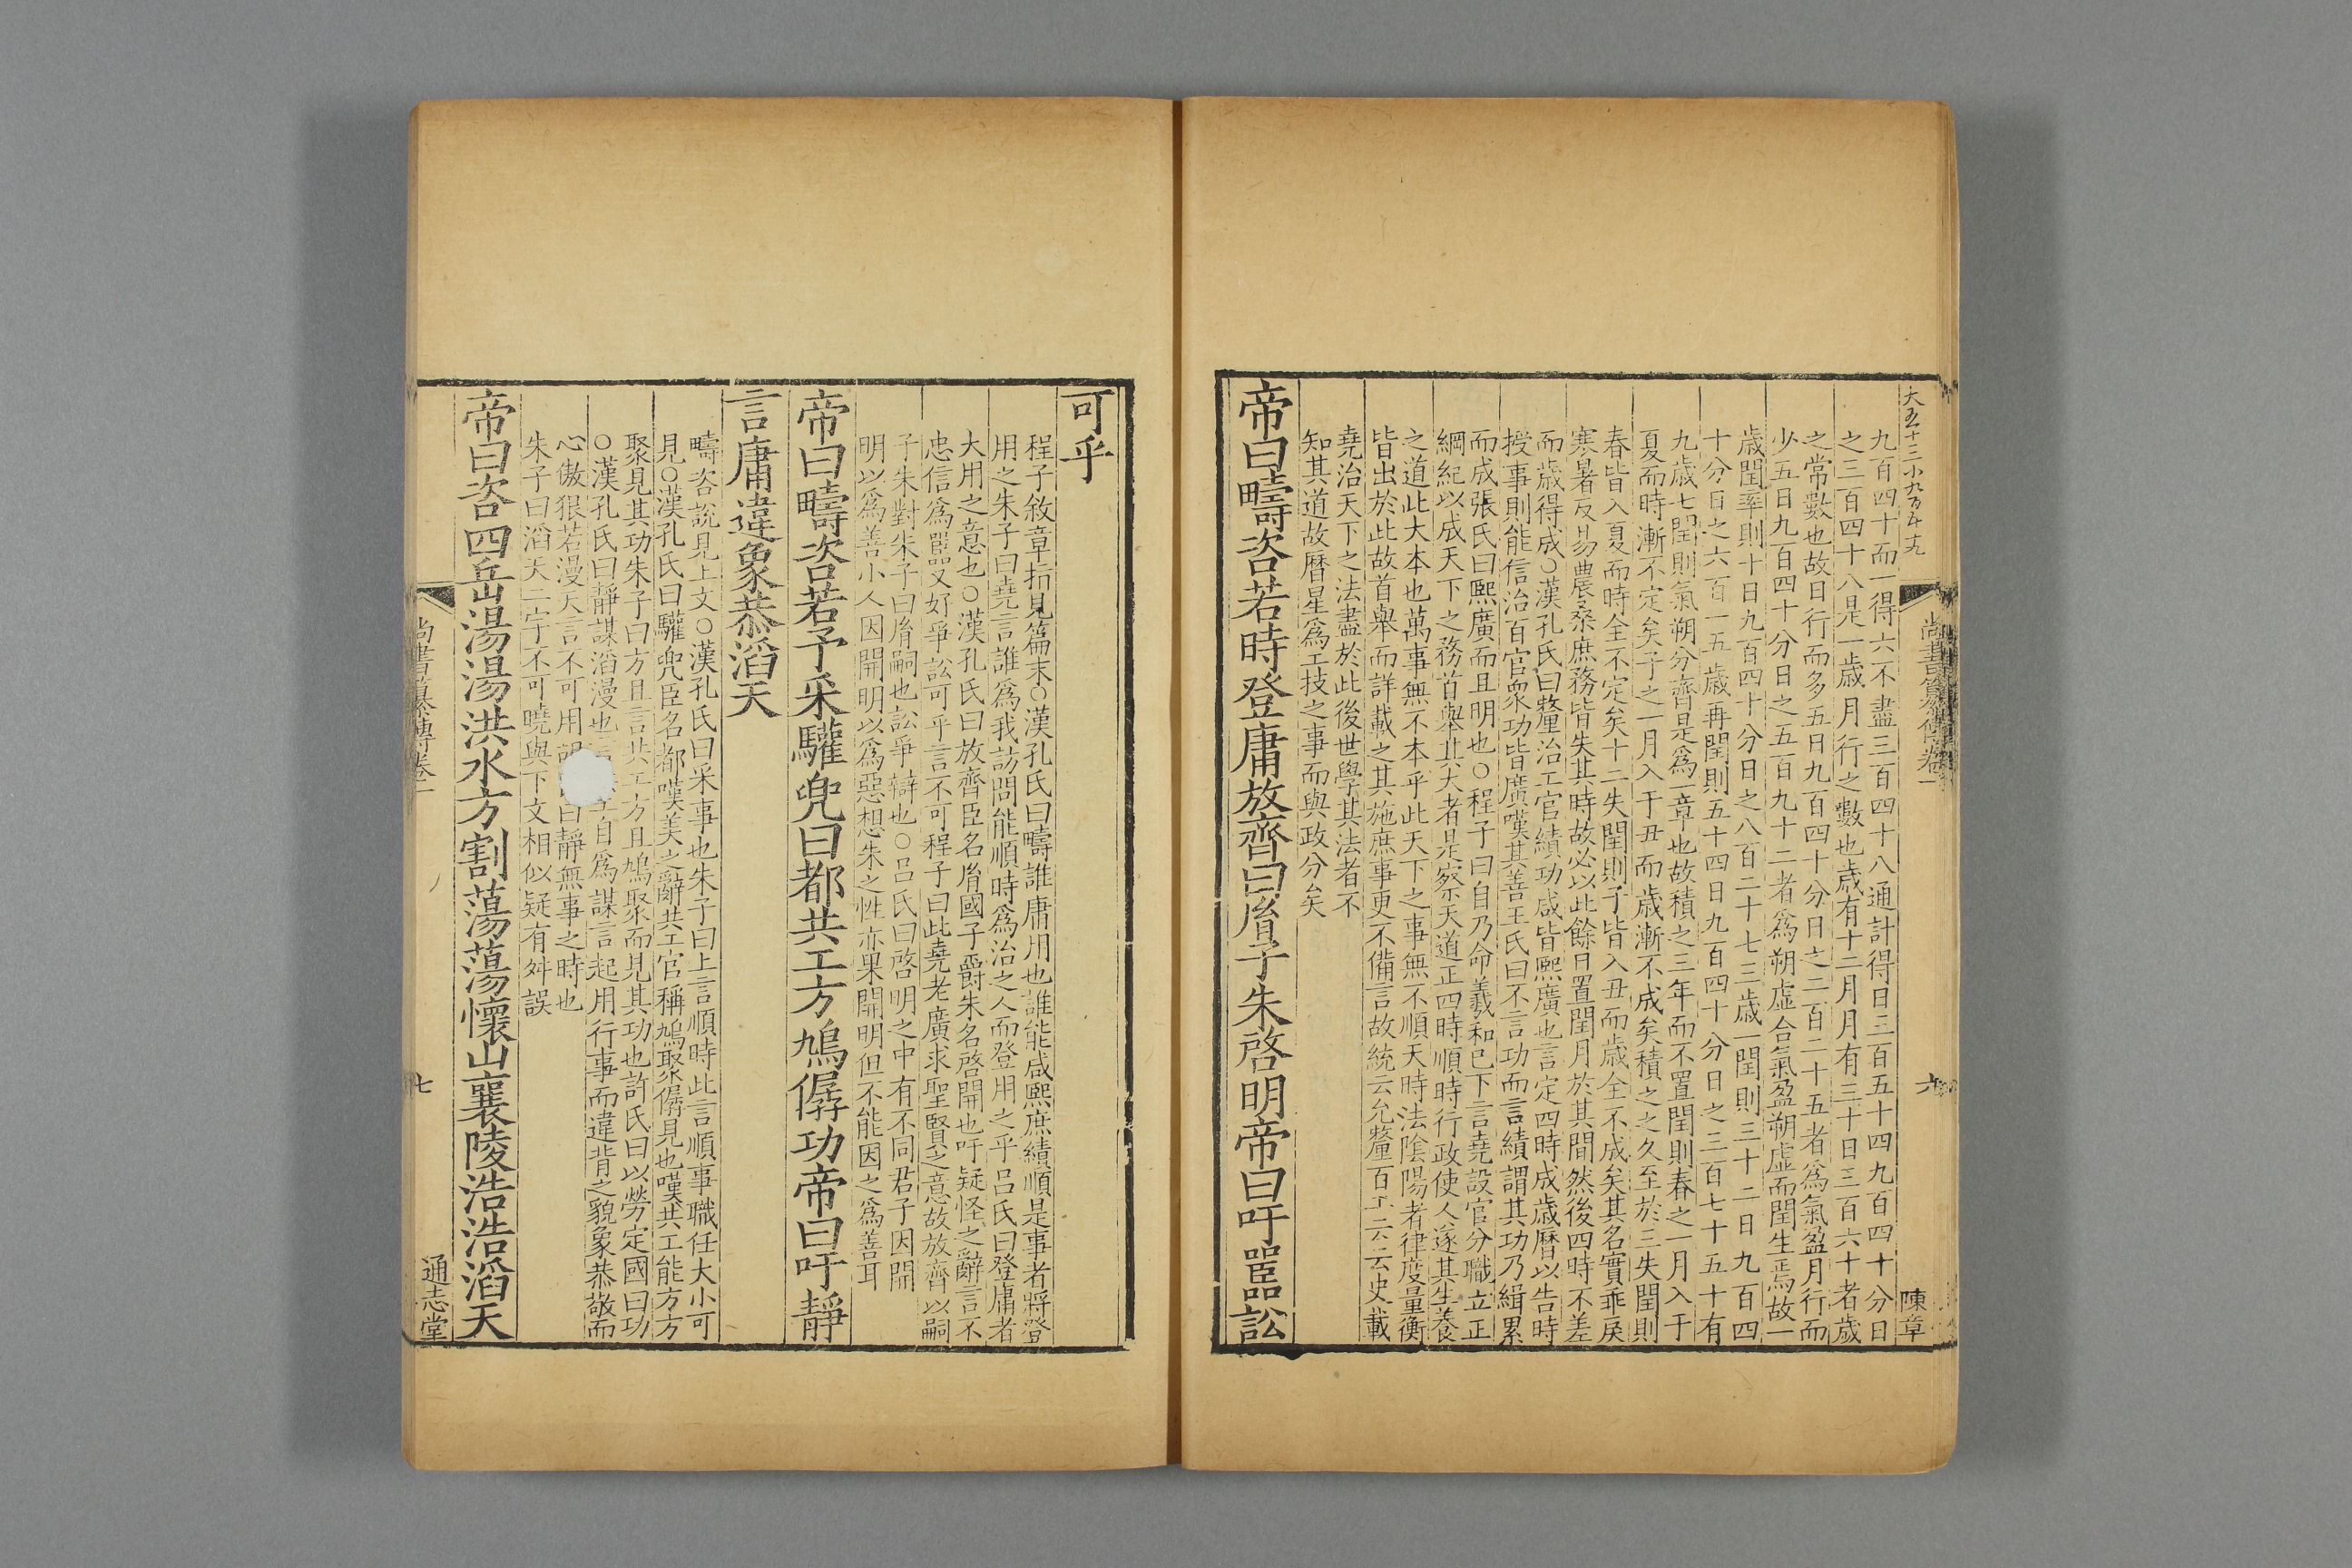 大五十三小九百五十九
九百四十而一得六不盡三百四十八通計得日三百五十四九百四十分日
之三百四十八是一歲月行之數也歲有十二月月有三十日三百六十者歲
之常數也故日行而多五日九百四十分日之二百二十五者爲氣盈月行而
少五日九百四十分日之五百九十二者爲朔虛合氣盈朔虛而閏生焉故一
歲閏率則十日九百四十分日之八百二十七三歲一閏則三十二日九百四
十分日之六百一五歲再閏則五十四日九百四十分日之三百七十五十有
九歲七閏則氣朔分齊是爲一章也故積之三年而不置閏則春之一月入于
夏而時漸不定矣子之一月入于丑而歲漸不成矣積之之久至於三失閏則
春皆入夏而時全不定矣十二失閏則子皆入丑而歲全不成矣其名實乖戾
寒暑反易農桑庶務皆失其時故必以此餘日置閏月於其間然後四時不差
而歲得成○漢孔氏曰釐治工官績功咸皆熙廣也言定四時成歲曆以告時
授事則能信治百官衆功皆廣嘆其善王氏曰不言功而言績謂其功乃緝累
而成張氏曰熙廣而且明也○程子曰自乃命羲和已下言堯設官分職立正
綱紀以成天下之務首舉其大者是察天道正四時順時行政使人遂其生養
之道此大本也萬事無不本乎此天下之事無不順天時法陰陽者律度量衡
皆出於此故首舉而詳載之其施庶事更不備言故統云允釐百工云云史載
堯治天下之法盡於此後世學其法者不
知其道故曆星爲工技之事而與政分矣
帝曰疇咨若時登庸放齊曰胤子朱啓明帝曰吁嚚訟
尚書纂傳卷一
六
陳章
可乎
程子敘章指見篇末○漢孔氏曰疇誰庸用也誰能咸熙庶績順是事者將登
用之朱子曰堯言誰爲我訪問能順時爲治之人而登用之乎呂氏曰登庸者
大用之意也○漢孔氏曰放齊臣名胤國子爵朱名啓開也吁疑怪之辭言不
忠信爲嚚又好爭訟可乎言不可程子曰此堯老廣求聖賢之意故放齊以嗣
子朱對朱子曰胤嗣也訟爭辯也○呂氏曰啓明之中有不同君子因開
明以爲善小人因開明以爲惡想朱之性亦果開明但不能因之爲善耳
帝曰疇咨若予采驩兜曰都共工方鳩僝功帝曰吁靜
言庸違象恭滔天
疇咨說見上文○漢孔氏曰采事也朱子曰上言順時此言順事職任大小可
見○漢孔氏曰驩兜臣名都嘆美之辭共工官稱鳩聚僝見也嘆共工能方方
聚見其功朱子曰方且言共工方且鳩聚而見其功也許氏曰以勞定國曰功
○漢孔氏曰靜謀滔漫也自爲謀言起用行事而違背之貌象恭敬而
心傲狠若漫天言不可用曰靜無事之時也
朱子曰滔天二字不可曉與下文相似疑有舛誤
帝曰咨四岳湯湯洪水方割蕩蕩懷山襄陵浩浩滔天
尚書纂傳卷一
七
通志堂